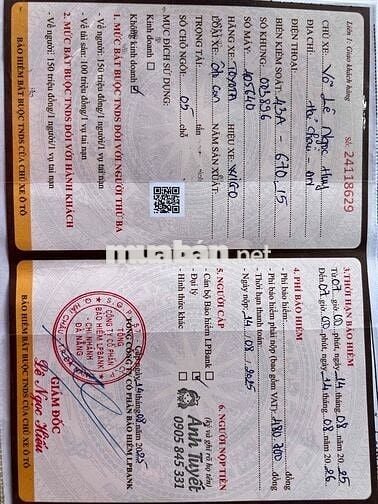 BẢO HIỂM BẮT BUỘC TNDS CỦA CHỦ XE Ô TÔ
Liên 1: Giao khách hàng
Số: 24118629
CHỦ XE: Võ Lê Ngọc Huy
ĐỊA CHỈ: Hải Châu - ĐN
ĐIỆN THOẠI:
BIỂN KIỂM SOÁT: 43A - 670.15
SỐ KHUNG: 025836
SỐ MÁY: 105640
HÃNG XE: TOYOTA HIỆU XE: WIGO
LOẠI XE: Ô tô con NĂM SẢN XUẤT:
TRỌNG TẢI: tấn
SỐ CHỖ NGỒI: 05 chỗ
MỤC ĐÍCH SỬ DỤNG:
Kinh doanh
Không kinh doanh
1. MỨC BẮT BUỘC TNDS ĐỐI VỚI NGƯỜI THỨ BA
- Về người: 150 triệu đồng/1 người/1 vụ tai nạn
- Về tài sản: 100 triệu đồng/1 vụ tai nạn
2. MỨC BẮT BUỘC TNDS ĐỐI VỚI HÀNH KHÁCH
- Về người: 150 triệu đồng/1 người/1 vụ tai nạn
BẢO HIỂM BẮT BUỘC TNDS CỦA CHỦ XE Ô TÔ
muaban.net
3. THỜI HẠN BẢO HIỂM
Từ 07 giờ, 00 phút, ngày 14 tháng 08 năm 2025
Đến 07 giờ, 00 phút, ngày 14 tháng 08 năm 2026
4. PHÍ BẢO HIỂM
- Phí bảo hiểm: đồng
- Phí bảo hiểm phải nộp (bao gồm VAT): 480.700 đồng
- Thời hạn thanh toán:
- Ngày nộp: 14. 08. 2025
5. NGƯỜI CẤP
- Cán bộ Bảo hiểm LPBank
- Đại lý
- Hình thức khác
6. NGƯỜI NỘP TIỀN
Ký và ghi rõ họ tên
Ánh Tuyết
0905 845 331
ngày 14 tháng 08 năm 2025
TỔNG CÔNG TY CỔ PHẦN BẢO HIỂM LPBANK
TỔNG
CÔNG TY CỔ PHẦN
BẢO HIỂM LPBANK
- CHI NHÁNH
ĐÀ NẴNG
GIÁM ĐỐC
Lê Ngọc Hiếu